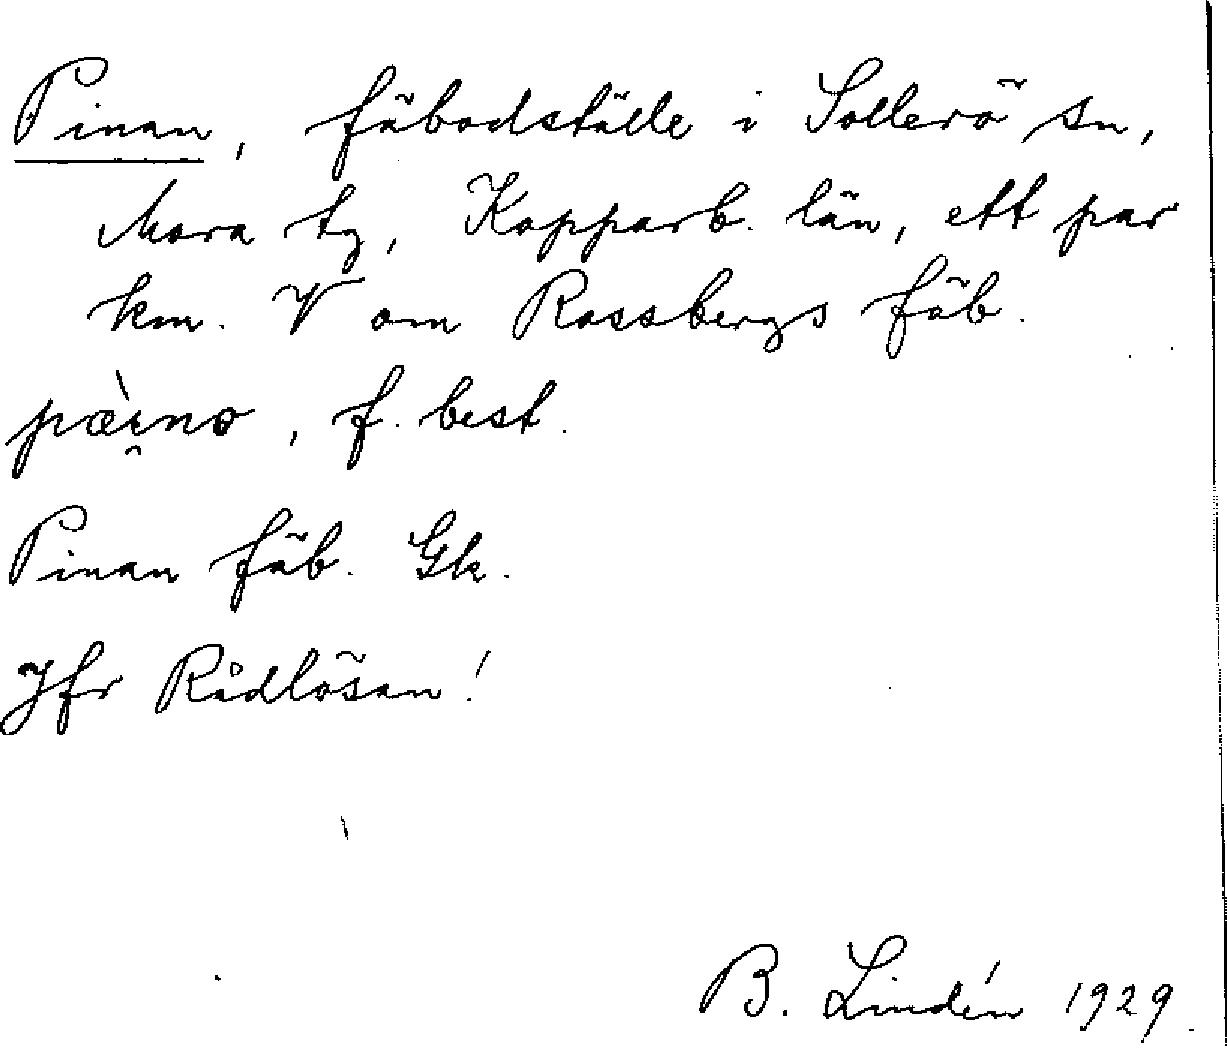 Pinan, fäbodställe i Sollerö sn,
Mora tg, Kopparb. län, ett par
km. V om Rossbergs fäb.
pæ̀i̯no, f. best.
Pinan fäb. Gk.
Jfr Rådlösan!
B. Lindén 1929.